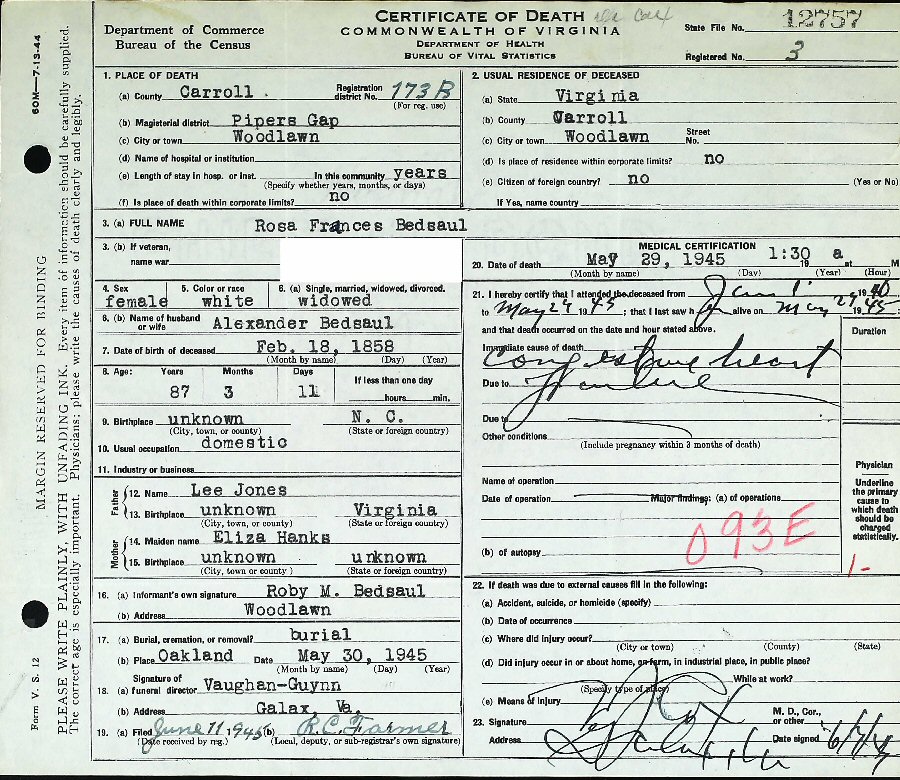 CERTIFICATE OF DEATH
COMMONWEALTH OF VIRGINIA
DEPARTMENT OF HEALTH
BUREAU OF VITAL STATISTICS
Department of Commerce
Bureau of the Census
State File No. 12757
Registered No. 3
60M—7-13-44
MARGIN RESERVED FOR BINDING
PLEASE WRITE PLAINLY, WITH UNFADING INK. Every item of information should be carefully supplied.
The correct age is especially important. Physicians: please write the causes of death clearly and legibly.
Form V. S. 12
1. PLACE OF DEATH
(a) County Carroll . Registration district No. 173B
(For reg. use)
(b) Magisterial district Pipers Gap
(c) City or town Woodlawn
(d) Name of hospital or institution
(e) Length of stay in hosp. or inst. In this community years
(Specify whether years, months, or days)
(f) Is place of death within corporate limits? no
2. USUAL RESIDENCE OF DECEASED
(a) State Virginia
(b) County Carroll
(c) City or town Woodlawn Street No.
(d) Is place of residence within corporate limits? no
(e) Citizen of foreign country? no (Yes or No)
If Yes, name country
3. (a) FULL NAME Rosa Frances Bedsaul
3. (b) If veteran,
name war
4. Sex female
5. Color or race white
6. (a) Single, married, widowed, divorced. widowed
6. (b) Name of husband or wife Alexander Bedsaul
7. Date of birth of deceased Feb. 18, 1858
(Month by name) (Day) (Year)
8. Age: Years Months Days If less than one day
87 3 11 hours min.
9. Birthplace unknown N. C.
(City, town, or county) (State or foreign country)
10. Usual occupation domestic
11. Industry or business
Father
12. Name Lee Jones
13. Birthplace unknown Virginia
(City, town, or county) (State or foreign country)
Mother
14. Maiden name Eliza Hanks
15. Birthplace unknown unknown
(City, town, or county ) (State or foreign country)
16. (a) Informant's own signature Roby M. Bedsaul
(b) Address Woodlawn
17. (a) Burial, cremation, or removal? burial
(b) Place Oakland Date May 30, 1945
(Month by name) (Day) (Year)
18. Signature of
(a) funeral director Vaughan-Guynn
(b) Address Galax, Va.
19. (a) Filed June 11, 1945 (b) R.C. Farmer
(Date received by reg.) (Local, deputy, or sub-registrar's own signature)
MEDICAL CERTIFICATION
20. Date of death May 29, 1945 19 at 1:30 a M
(Month by name) (Day) (Year) (Hour)
21. I hereby certify that I attended the deceased from Jan 1 1940
to May 29 1945; that I last saw h er alive on May 29 1945
and that death occurred on the date and hour stated above.
Duration
Immediate cause of death congestive heart
Due to failure
Due to
Other conditions
(Include pregnancy within 3 months of death)
Name of operation
Date of operation Major findings: (a) of operations
093E
(b) of autopsy
Physician
Underline
the primary
cause to
which death
should be
charged
statistically.
1-
22. If death was due to external causes fill in the following:
(a) Accident, suicide, or homicide (specify)
(b) Date of occurrence
(c) Where did injury occur?
(City or town) (County) (State)
(d) Did injury occur in or about home, on farm, in industrial place, in public place?
While at work?
(Specify type of place)
(e) Means of injury
23. Signature M. D., Cor., or other
Address Date signed